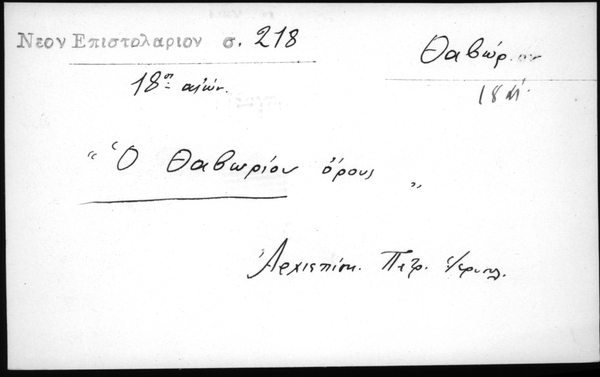 Νεον Επιστολαριον σ. 218
Θαβώριον
18ος αιών.
18 αἰ.
"Ὁ Θαβωρίου ὄρους"
Ἀρχιεπίσκ. Πετρ.